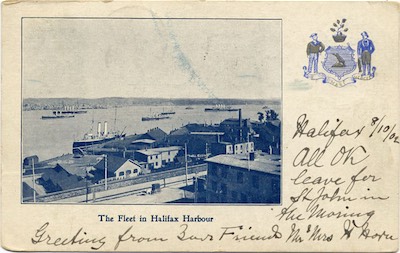 The Fleet in Halifax Harbour
Halifax 8/10/02
All OK
leave for
St John in
the Morning
Greeting from Friends Mr & Mrs